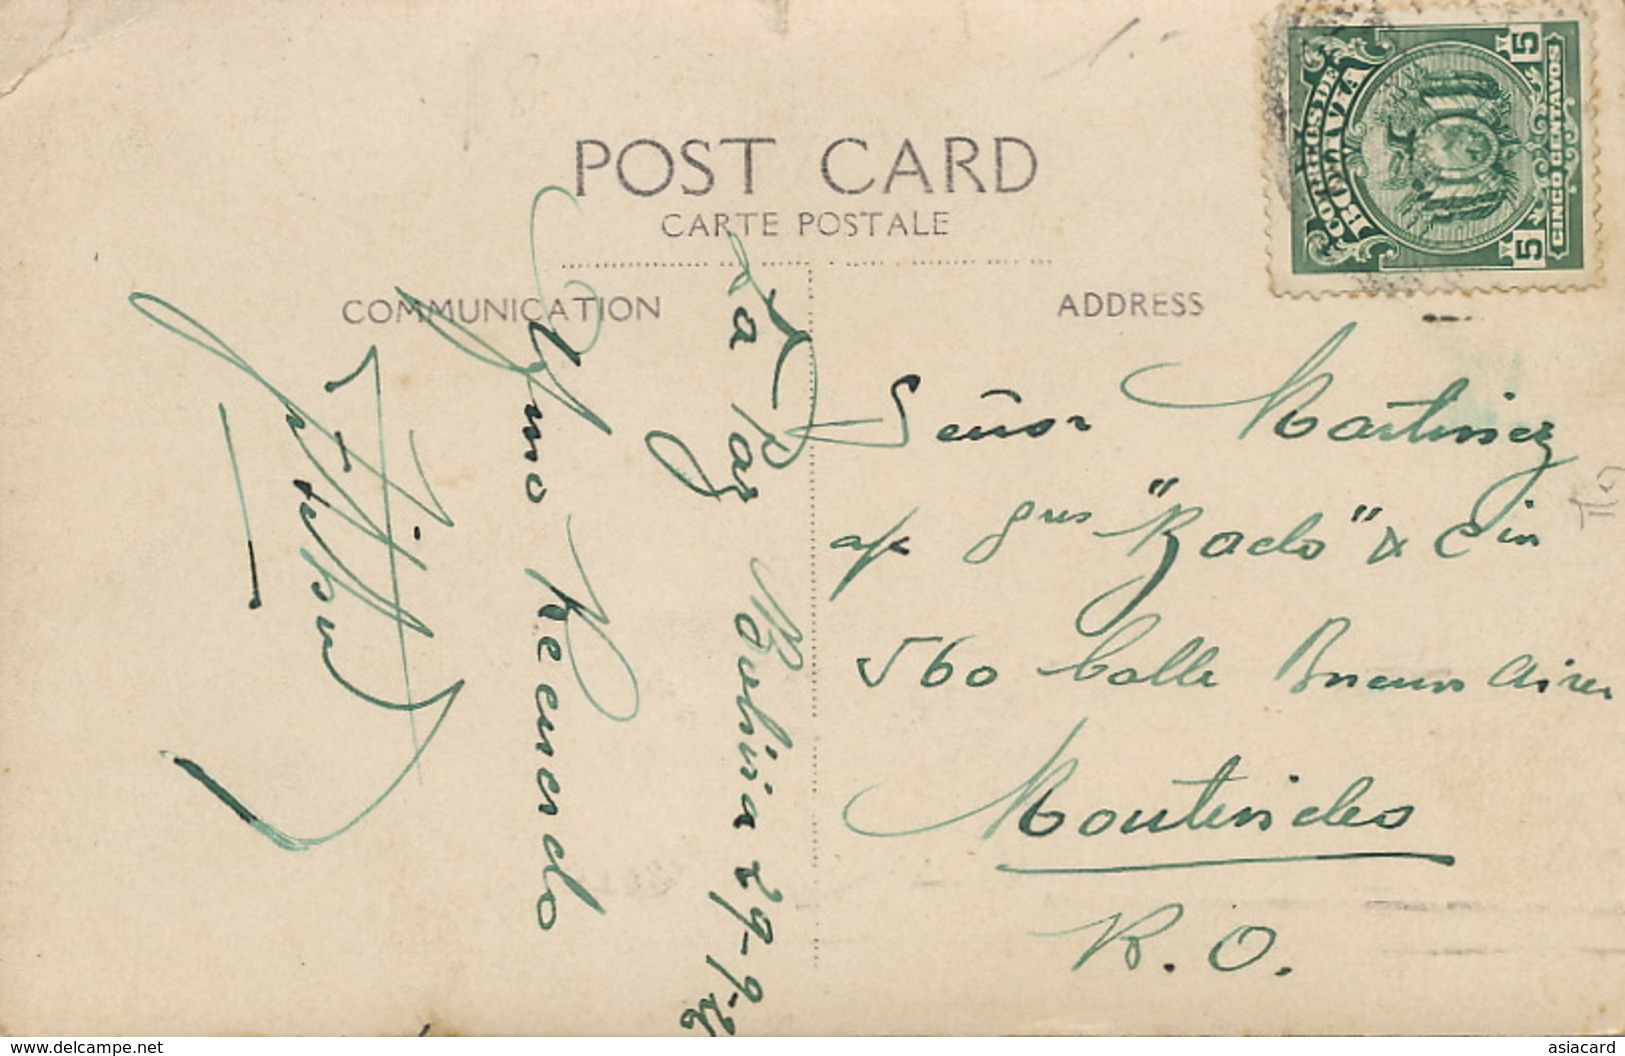 POST CARD
CARTE POSTALE
COMMUNICATION
ADDRESS
CORREOS DE
BOLIVIA
5 5
CINCO CENTAVOS
La Paz Bolivia 29-9-26
Recuerdo
Señor Martinez
560 Calle Buenos Aires
Montevideo
R. O.
www.delcampe.net
asiacard